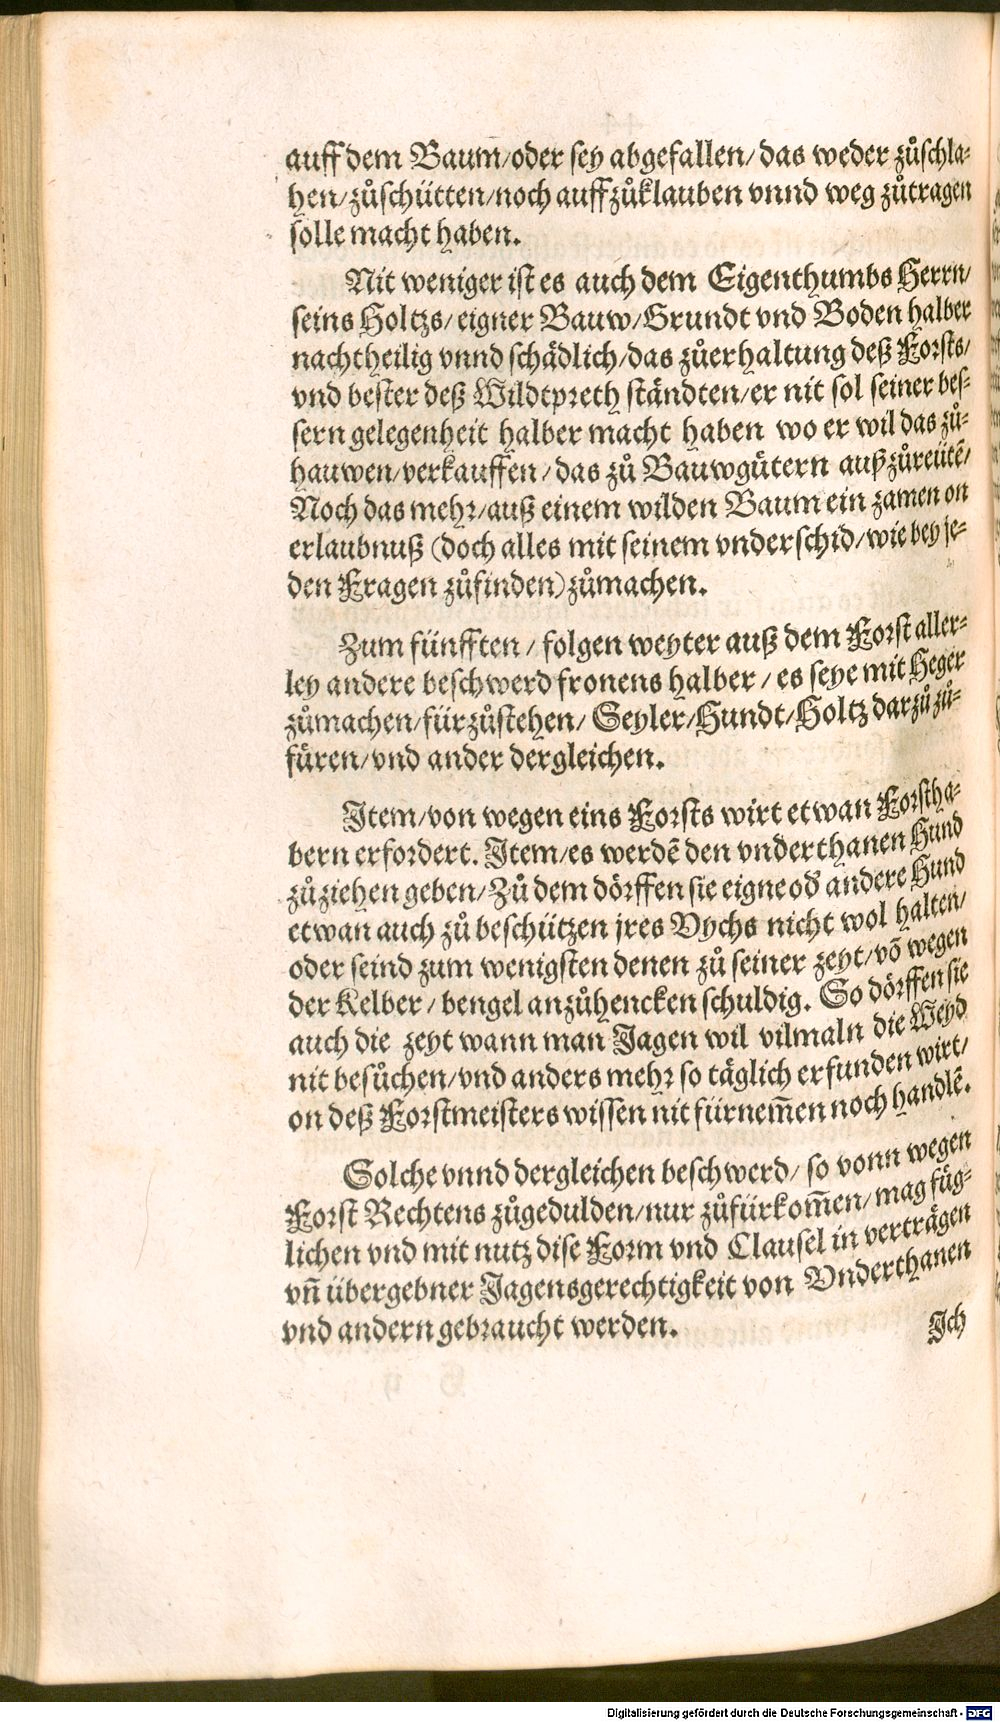 auff dem Baum/oder sey abgefallen/das weder zuͦschla-
hen/zuͦschütten/noch auffzuͦklauben vnnd weg zuͦtragen
solle macht haben.
Nit weniger ist es auch dem Eigenthumbs Herrn/
seins Holtzs/eigner Bauw/Grundt vnd Boden halber
nachtheilig vnnd schädlich/das zuͦerhaltung deß Forsts/
vnd bester deß Wildtpreth ständten/er nit sol seiner bes-
sern gelegenheit halber macht haben wo er wil das zuͦ-
hauwen/verkauffen/das zuͦ Bauwgütern außzuͦreütē/
Noch das mehr/auß einem wilden Baum ein zamen on
erlaubnuß (doch alles mit seinem vnderschid/wie bey je-
den Fragen zuͦfinden) zuͦmachen.
Zum fünfften/folgen weyter auß dem Forst aller-
ley andere beschwerd fronens halber/es seye mit Heger
zuͦmachen/fürzuͦstehen/Seyler/Hundt/Holtz darzuͦ zuͦ-
füren/vnd ander dergleichen.
Item/von wegen eins Forsts wirt etwan Forstha-
bern erfordert. Item/es werdē den vnderthanen Hund
zuͦziehen geben/Zuͦ dem dörffen sie eigne oď andere Hund
etwan auch zuͦ beschützen jres Vychs nicht wol halten/
oder seind zum wenigsten denen zuͦ seiner zeyt/vō wegen
der Kelber/bengel anzuͦhencken schuldig. So dörffen sie
auch die zeyt wann man Jagen wil vilmaln die Weyd
nit besuͦchen/vnd anders mehr so täglich erfunden wirt/
on deß Forstmeisters wissen nit fürnem̄en noch handlē.
Solche vnnd dergleichen beschwerd/so vonn wegen
Forst Rechtens zuͦgedulden/nur zuͦfürkom̄en/mag füg-
lichen vnd mit nutz dise Form vnd Clausel in verträgen
vn̄ übergebner Jagensgerechtigkeit von Vnderthanen
vnd andern gebraucht werden.
Ich
Digitalisierung gefördert durch die Deutsche Forschungsgemeinschaft - DFG